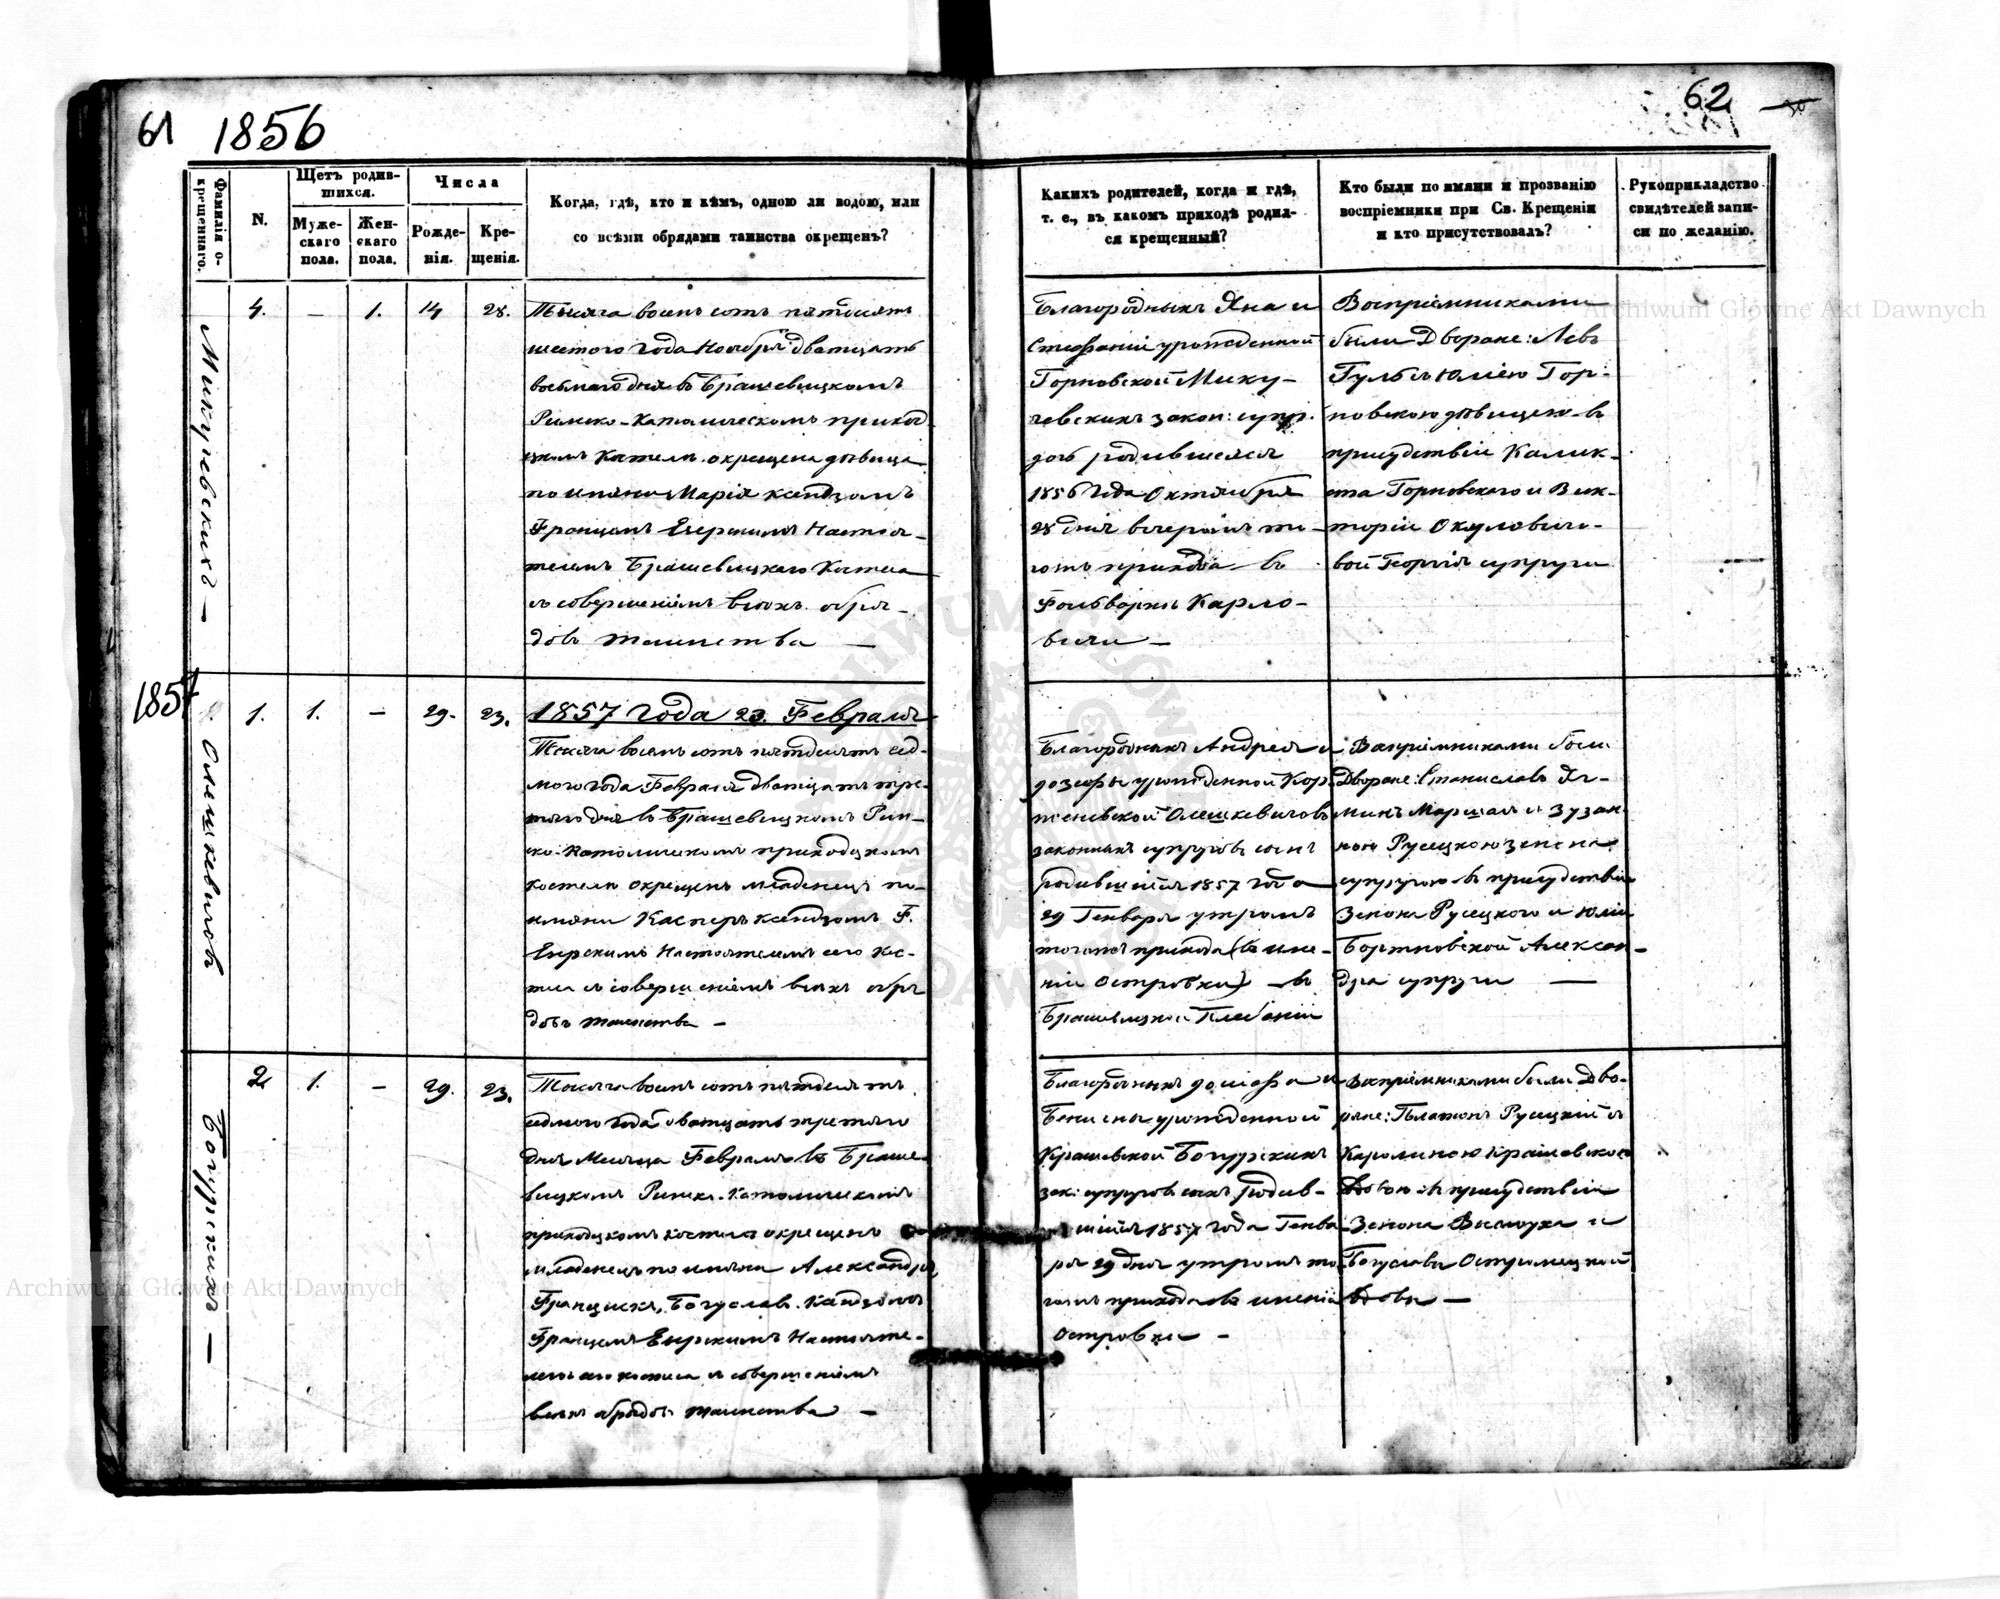 61
1856
62
Фамилія окрещеннаго.
N.
Щетъ родившихся.
Мужескаго пола.
Женскаго пола.
Числа
Рожденія.
Крещенія.
Когда, гдѣ, кто и кѣмъ, одною ли водою, или
со всѣми обрядами таинства окрещенъ?
Каких родителей, когда и гдѣ,
т. е., въ какомъ приходѣ родил-
ся крещенный?
Кто были по имяни и прозванію
воспріемники при Св. Крещеніи
и кто присутствовалъ?
Рукоприкладство
свидѣтелей запи-
си по желанію.
Микучевскихъ —
4.
—
1.
14
28.
Тысяча восемь сотъ пятдесятъ
шестого года Ноября дватцать
восьмаго дня въ Брашевицкомъ
Римско-Католическомъ приход-
скомъ Костелѣ окрещена дѣвица
по имяни Марія ксендзомъ
Францомъ Настоя-
телемъ Брашевицкаго Костела
съ совершеніемъ всѣхъ обря-
довъ таинства —
Благородныхъ Яна и
Стефаніи урожденной
Горновской Мику-
чевскихъ закон: супр.
дочь родившаяся
1856 года Октября
28 дня вечеромъ то-
гожъ прихода въ
Фольваркѣ Карло-
вичи —
Воспріемниками
были Дворяне: Левъ
Гульб съ Юліею Гор-
новскою дѣвицею въ
присудствіи Калик-
ста Горновскаго и Вик-
торіи Окулови-
вой Георгія супруги
1857
Олешкевичовъ
1.
1.
—
29.
23.
1857 года 23 Февраля
Тысяча восемь сотъ пятдесятъ сед-
мого года Февраля дватцать тре-
тяго дня въ Брашевицкомъ Рим-
ско-Католическомъ приходскомъ
костелѣ окрещенъ младенецъ по
имяни Касперъ ксендзомъ Ф.
Настоятелемъ сего Кос-
тела съ совершеніемъ всѣхъ обря
довъ таинства —
Благородныхъ Андрея и
Іозефы урожденной Кор-
женевской Олешкевичовъ
законныхъ супруговъ сынъ
родившійся 1857 года
29 Генваря утромъ
тогожъ прихода (въ име-
ніи Островки) — въ
Брашевицкой Плебаніи
Воспріемниками были
Дворяне: Станиславъ Яг-
минъ Маршал и Зузан-
ною Русецкою Зенона
супругою въ присудствіи
Зенона Русецкого и Юліи
Бортновской Алексан-
дра супруги —
Богурскихъ —
2
1.
—
29.
23.
Тысяча восемь сотъ пятдесятъ
седмого года двадцать третяго
дня Месяца Февраля въ Браше-
вицкомъ Римско-Католическомъ
приходскомъ костелѣ окрещенъ
младенецъ по имяни Александръ,
Францискъ, Богуславъ Ксендзомъ
Францомъ Настояте-
лемъ сего костела съ совершеніемъ
всѣхъ обрядовъ таинства —
Благородныхъ Іосифа и
урожденной
Крашевской Богурскихъ
зак: супруговъ сынъ родив-
шійся 1857 года Генва-
ря 29 дня утромъ то-
гожъ прихода въ имѣніи
Островки —
Воспріемниками были Дво-
ряне: Платонъ Русецкій съ
Каролиною Крашевскою
Вдовою въ присудствіи
Зенона Вислоуха и
Богуславы Островецкой
Вдовы —
Archiwum Główne Akt Dawnych
Archiwum Główne Akt Dawnych